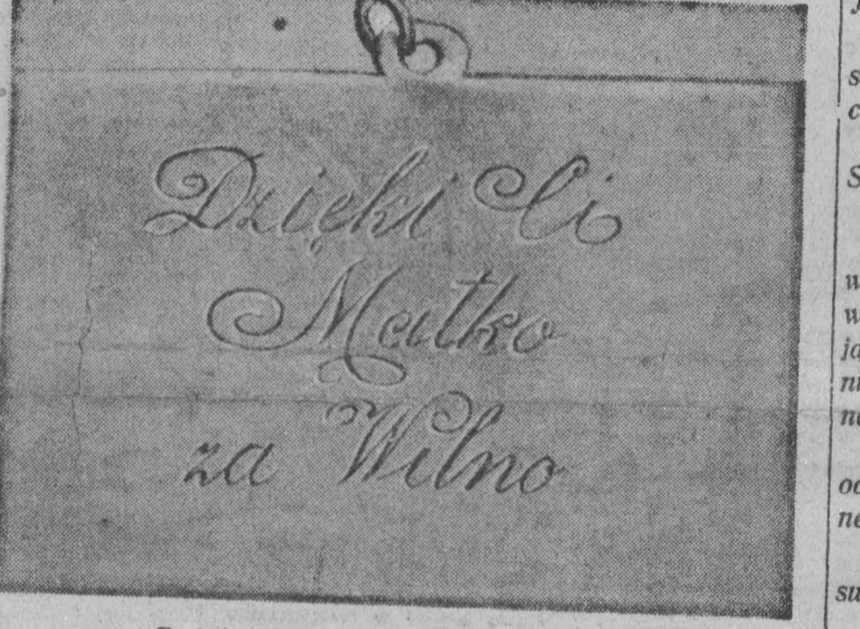 Dzięki Ci
Matko
za Wilno